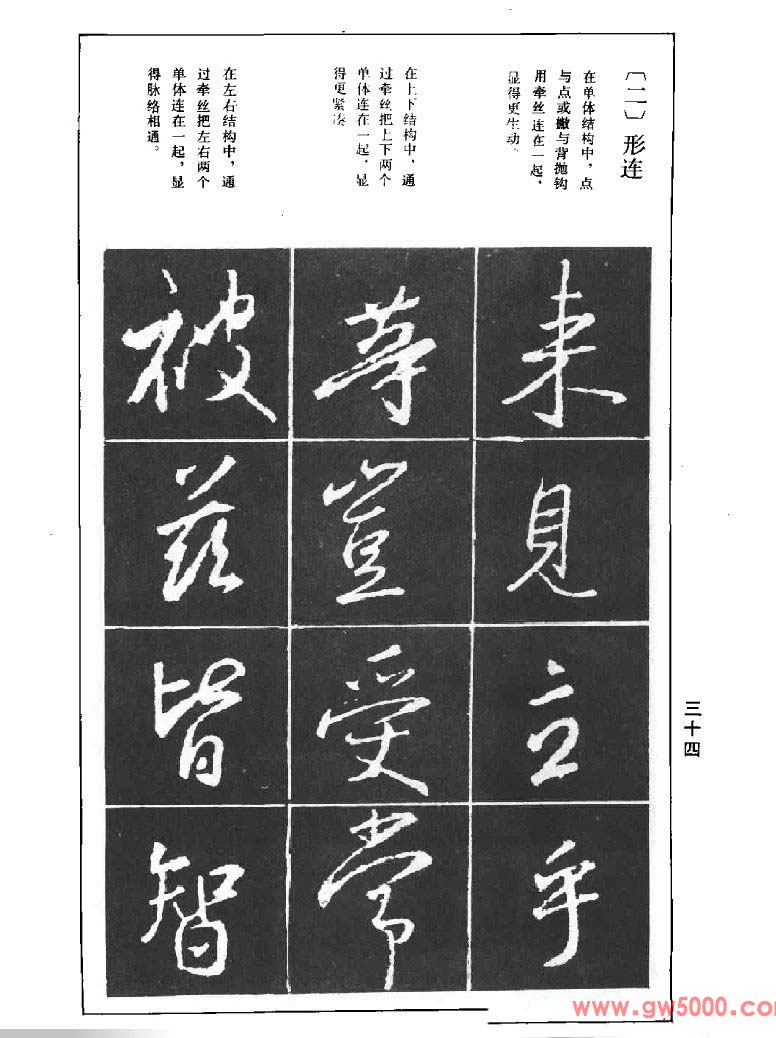 〔二〕形连
在单体结构中，点
与点或撇与背抛钩
用牵丝连在一起，
显得更生动。
在上下结构中，通
过牵丝把上下两个
单体连在一起，显
得更紧凑
在左右结构中，通
过牵丝把左右两个
单体连在一起，显
得脉络相通。
来
見
立
乎
等
豈
受
常
被
茲
皆
智
三十四
www.gw5000.com